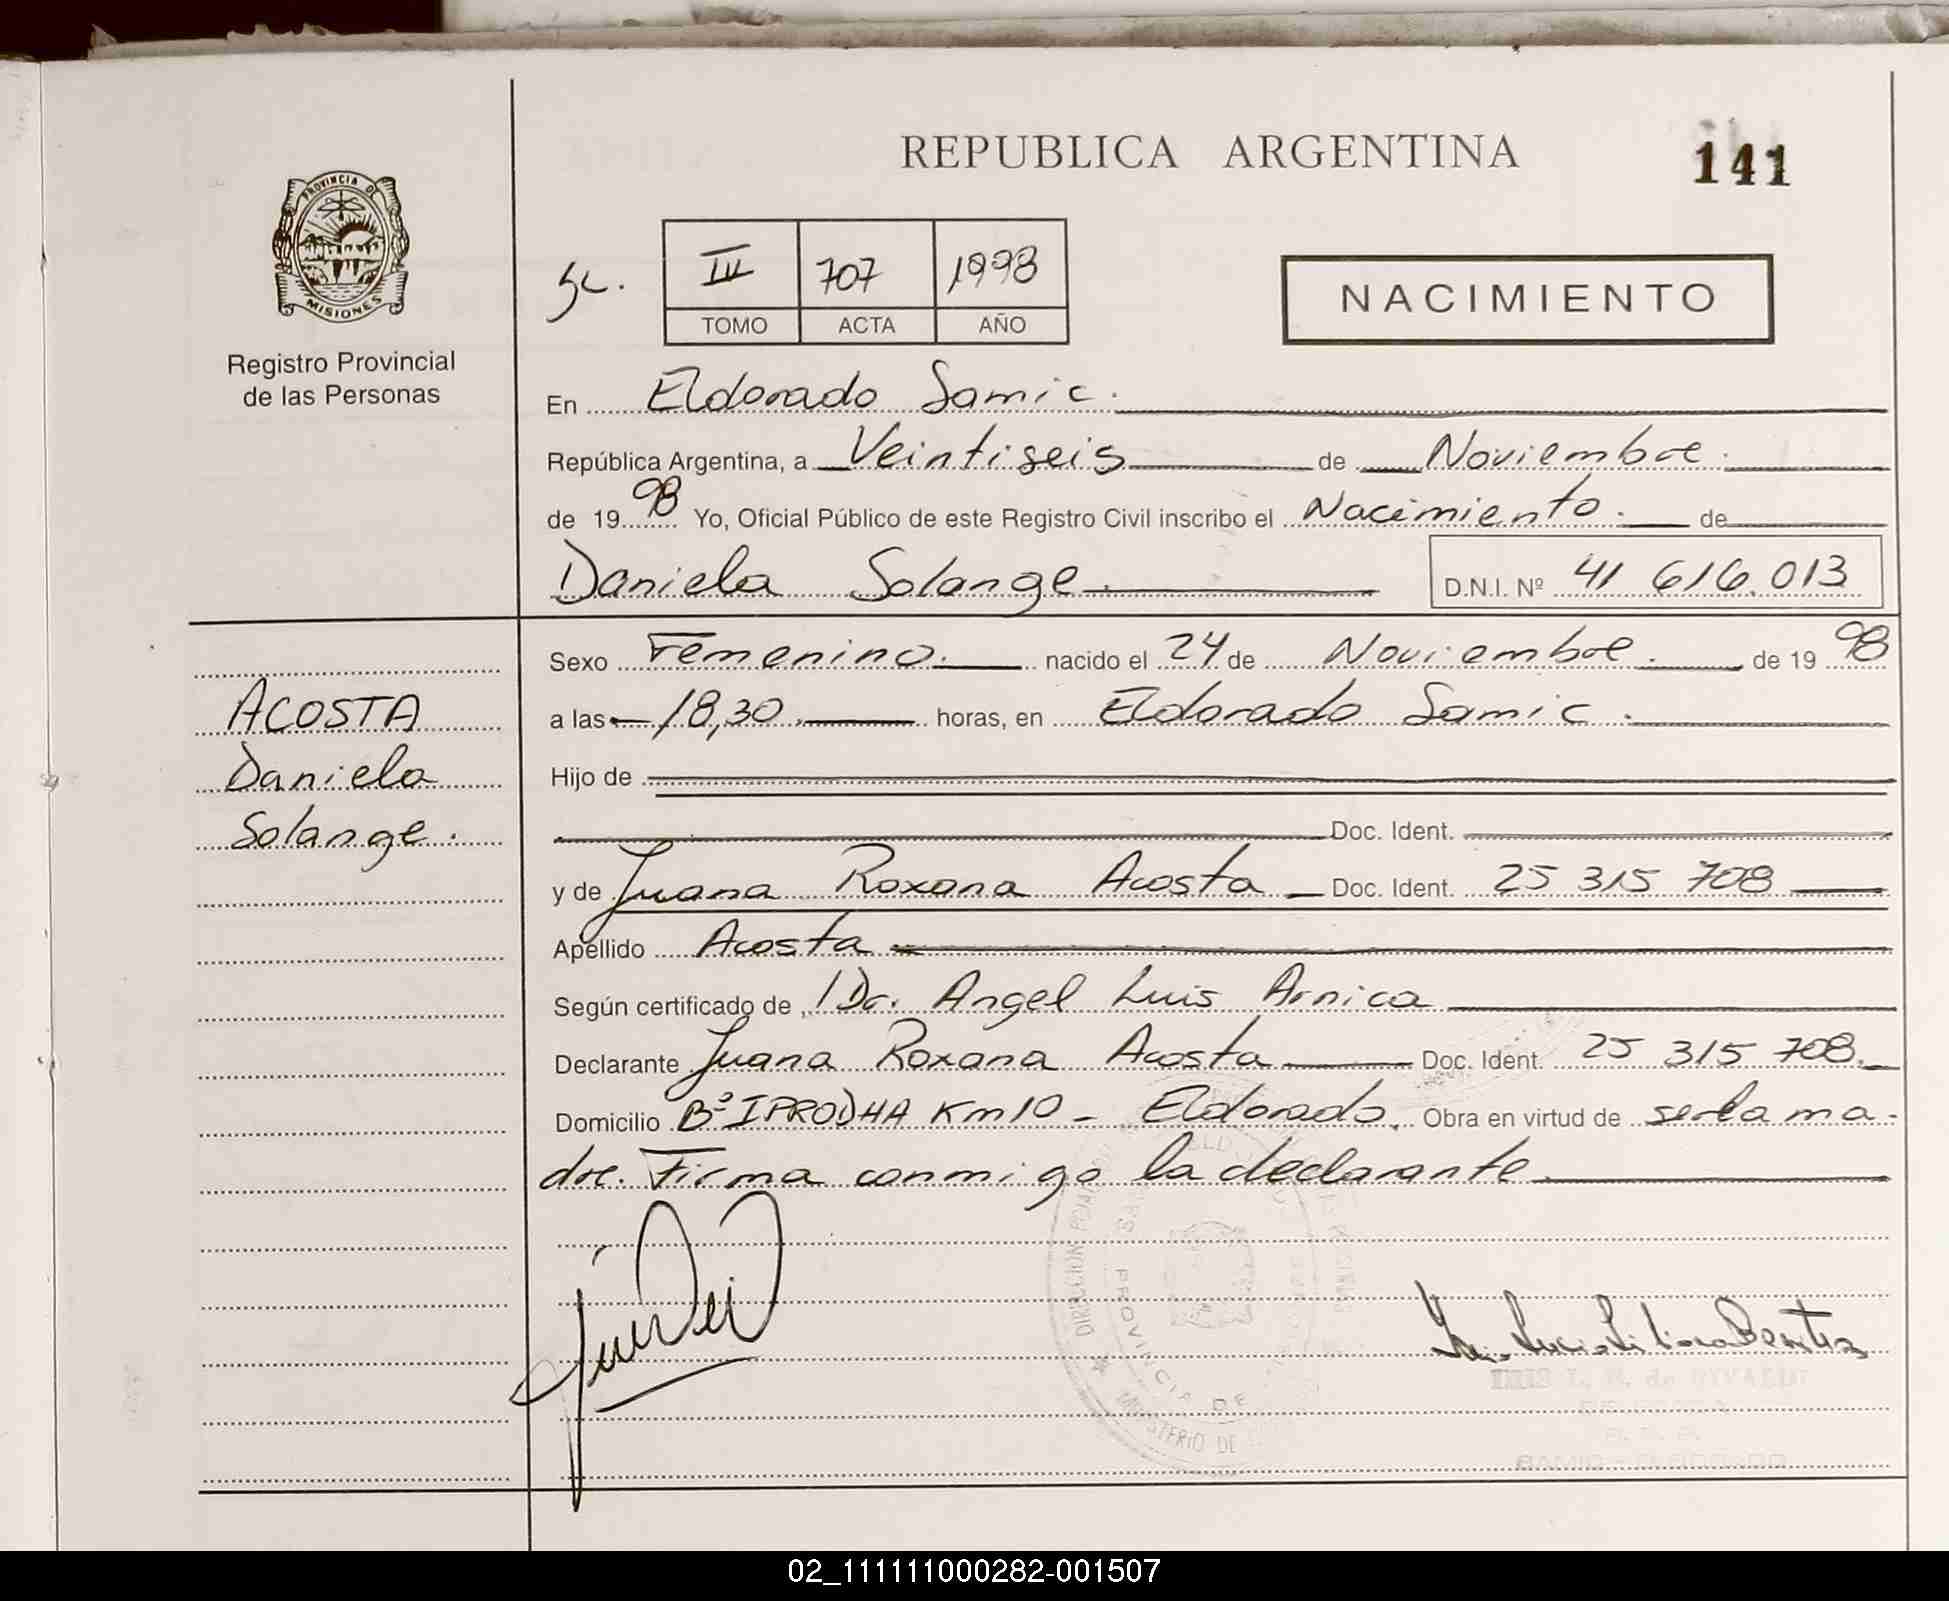 REPUBLICA ARGENTINA
141
PROVINCIA DE
MISIONES
Registro Provincial
de las Personas
III 707 1998
TOMO ACTA AÑO
NACIMIENTO
En Eldorado Samic.
República Argentina, a Veintiseis de Noviembre
de 1998 Yo, Oficial Público de este Registro Civil inscribo el Nacimiento. de
Daniela Solange. D.N.I. Nº 41 616.013
Sexo Femenino. nacido el 24 de Noviembre. de 1998
a las 18,30 horas, en Eldorado Samic.
Hijo de
Doc. Ident.
y de Juana Roxana Acosta Doc. Ident. 25 315 708
Apellido Acosta
Según certificado de Dr. Angel Luis Arnica
Declarante Juana Roxana Acosta Doc. Ident. 25 315 708.
Domicilio Bº IPRODHA Km 10 - Eldorado. Obra en virtud de ser la ma-
dre. Firma conmigo la declarante
ACOSTA
Daniela
Solange.
PROVINCIA DE
MINISTERIO DE
02_111111000282-001507